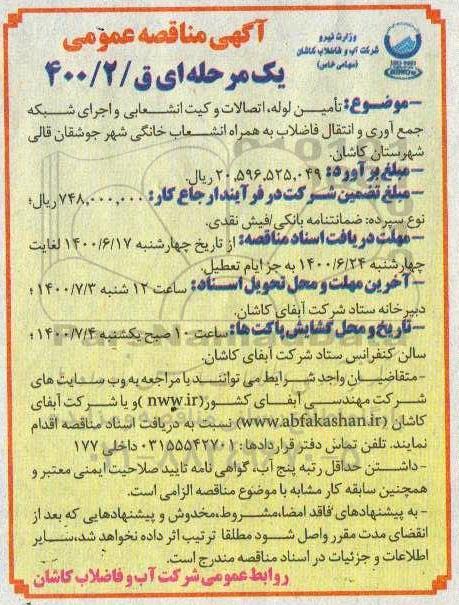 وزارت نیرو
شرکت آب و فاضلاب کاشان
(سهامی خاص)
آگهی مناقصه عمومی
یک مرحله ای ق /۴۰۰/۲
-موضوع: تأمین لوله، اتصالات و کیت انشعابی و اجرای شبکه
جمع آوری و انتقال فاضلاب به همراه انشعاب خانگی شهر جوشقان قالی
شهرستان کاشان.
-مبلغ برآورد: ۲۰,۵۹۶,۵۲۵,۰۴۹ ریال.
-مبلغ تضمین شرکت در فرآیند ارجاع کار: ۷۴۸,۰۰۰,۰۰۰ ریال؛
نوع سپرده: ضمانتنامه بانکی/فیش نقدی.
-مهلت دریافت اسناد مناقصه: از تاریخ چهارشنبه ۱۴۰۰/۶/۱۷ لغایت
چهارشنبه ۱۴۰۰/۶/۲۴ به جز ایام تعطیل.
-آخرین مهلت و محل تحویل اسناد: ساعت ۱۲ شنبه ۱۴۰۰/۷/۳؛
دبیرخانه ستاد شرکت آبفای کاشان.
-تاریخ و محل گشایش پاکت ها: ساعت ۱۰ صبح یکشنبه ۱۴۰۰/۷/۴؛
سالن کنفرانس ستاد شرکت آبفای کاشان.
-متقاضیان واجد شرایط می توانند با مراجعه به وب سایت های
شرکت مهندسی آبفای کشور(nww.ir )و یا شرکت آبفای
کاشان (www.abfakashan.ir) نسبت به دریافت اسناد مناقصه اقدام
نمایند. تلفن تماس دفتر قراردادها: ۰۳۱۵۵۵۴۲۷۰۱ داخلی ۱۷۷
-داشتن حداقل رتبه پنج آب، گواهی نامه تایید صلاحیت ایمنی معتبر و
همچنین سابقه کار مشابه با موضوع مناقصه الزامی است.
- به پیشنهادهای فاقد امضا،مشروط،مخدوش و پیشنهادهایی که بعد از
انقضای مدت مقرر واصل شود مطلقا ترتیب اثر داده نخواهد شد،سایر
اطلاعات و جزئیات در اسناد مناقصه مندرج است.
روابط عمومی شرکت آب و فاضلاب کاشان